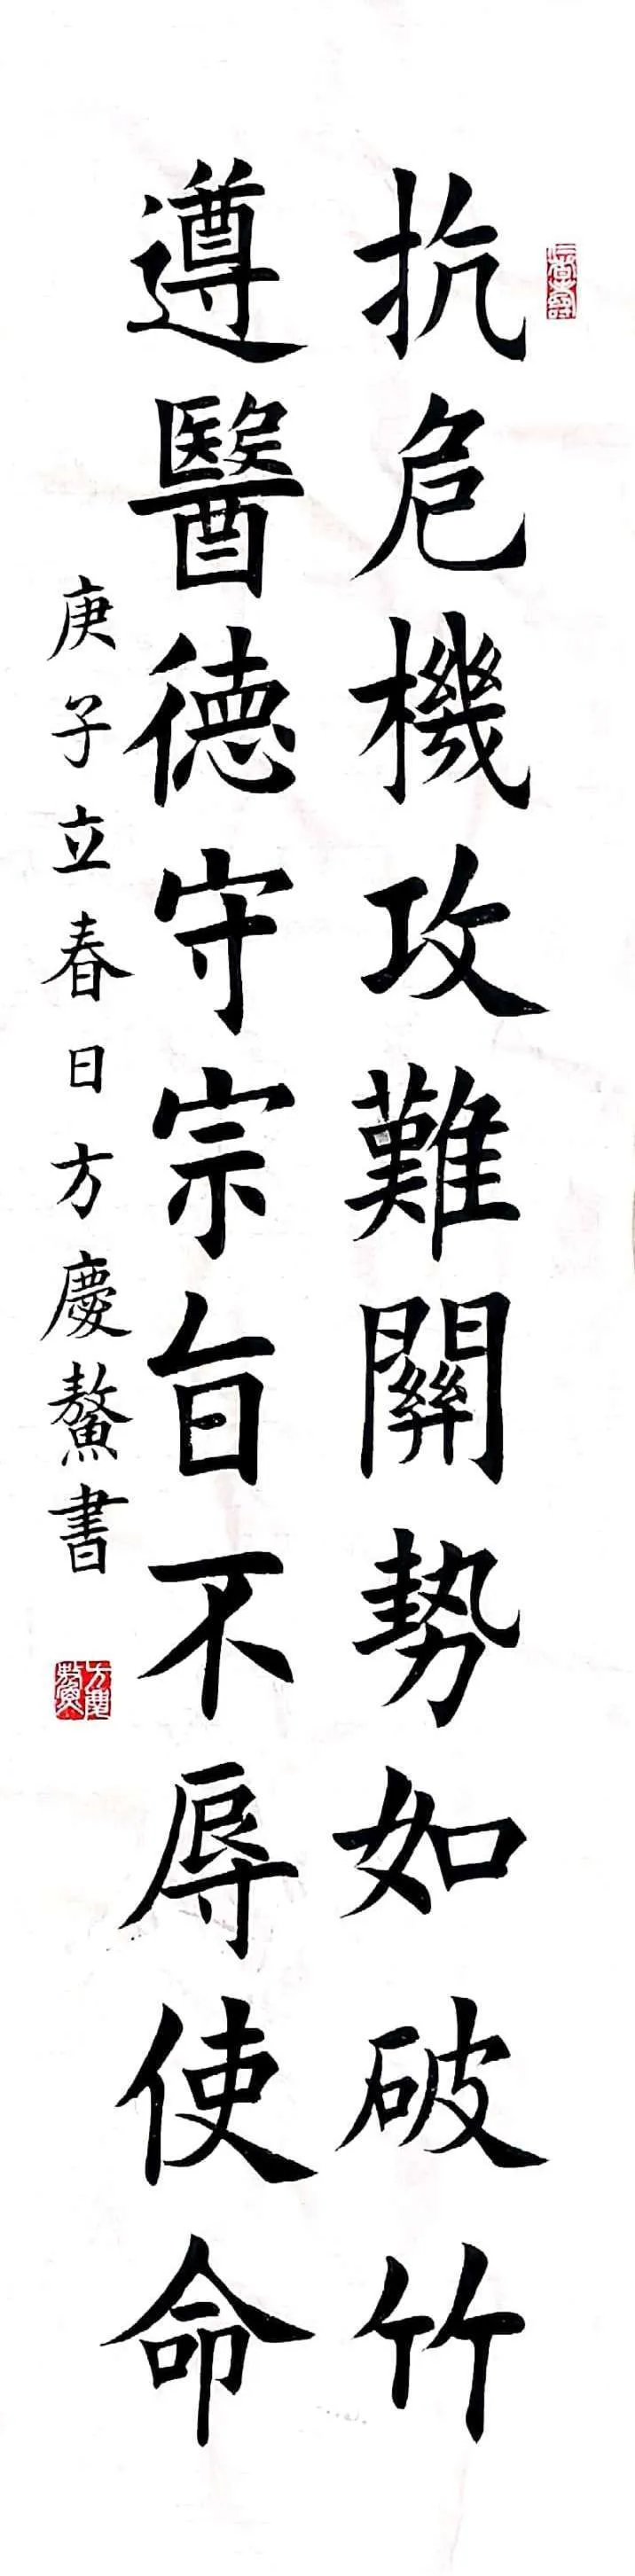 抗危機攻難關勢如破竹
遵醫德守宗旨不辱使命
庚子立春日方慶鰲書